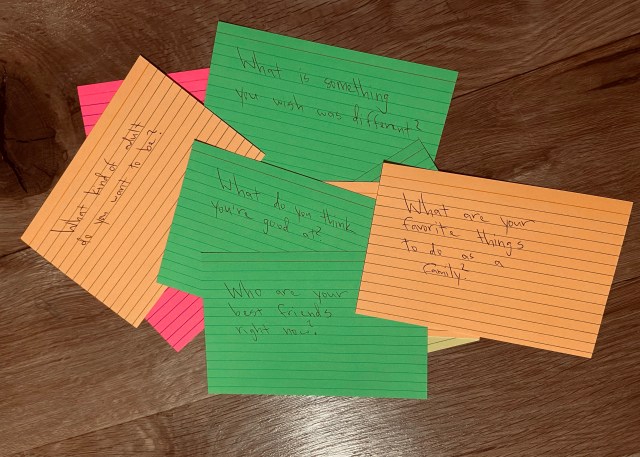 What is something
you wish was different?
What kind of adult
do you want to be?
What do you think
you're good at?
What are your
favorite things
to do as a
family?
Who are your
best friends
right now?